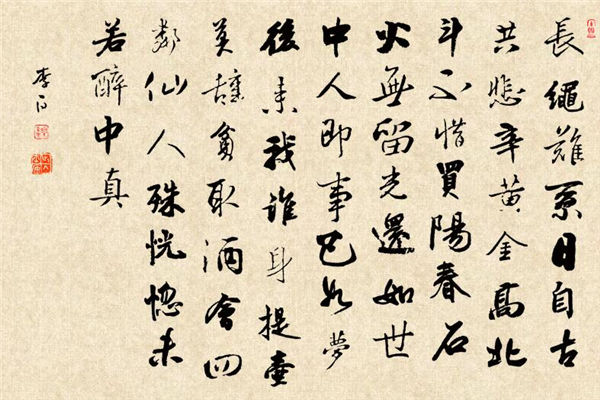 長繩難系日自古
共悲辛黃金高北
斗不惜買陽春石
火無留光還如世
中人即事已如夢
後来我誰身提壺
莫辭貧取酒會四
鄰仙人殊恍惚未
若醉中真
李白